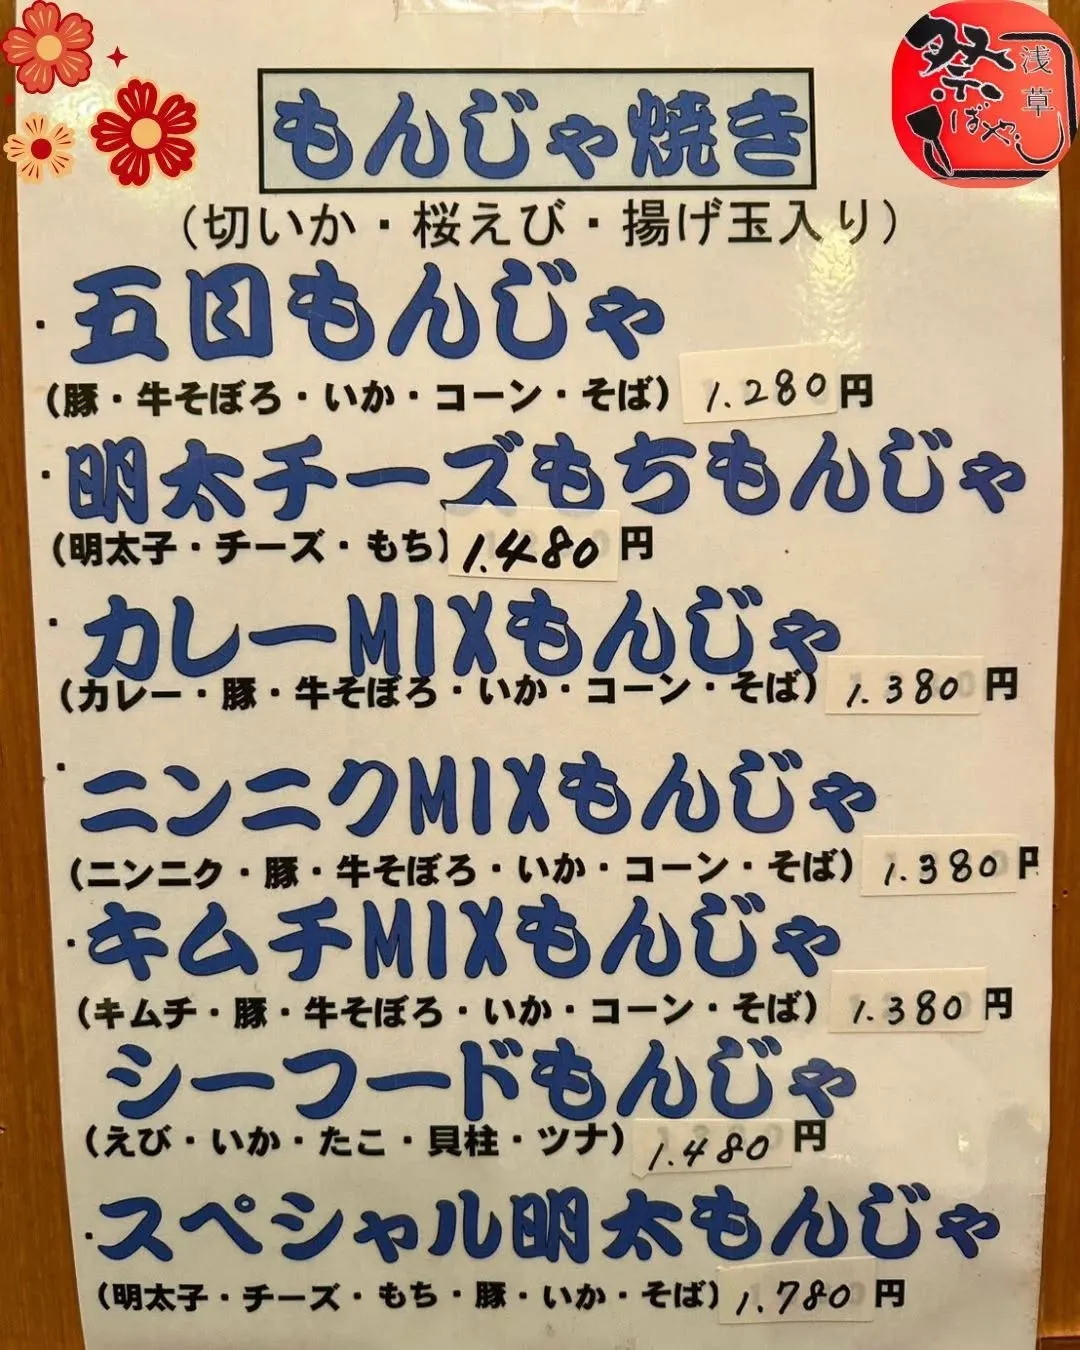 浅草
祭ばやし
もんじゃ焼き
（切いか・桜えび・揚げ玉入り）
・五目もんじゃ
（豚・牛そぼろ・いか・コーン・そば） 1.280円
・明太チーズもちもんじゃ
（明太子・チーズ・もち） 1.480円
・カレーMIXもんじゃ
（カレー・豚・牛そぼろ・いか・コーン・そば） 1.380円
・ニンニクMIXもんじゃ
（ニンニク・豚・牛そぼろ・いか・コーン・そば） 1.380円
・キムチMIXもんじゃ
（キムチ・豚・牛そぼろ・いか・コーン・そば） 1.380円
シーフードもんじゃ
（えび・いか・たこ・貝柱・ツナ） 1.480円
・スペシャル明太もんじゃ
（明太子・チーズ・もち・豚・いか・そば） 1.780円